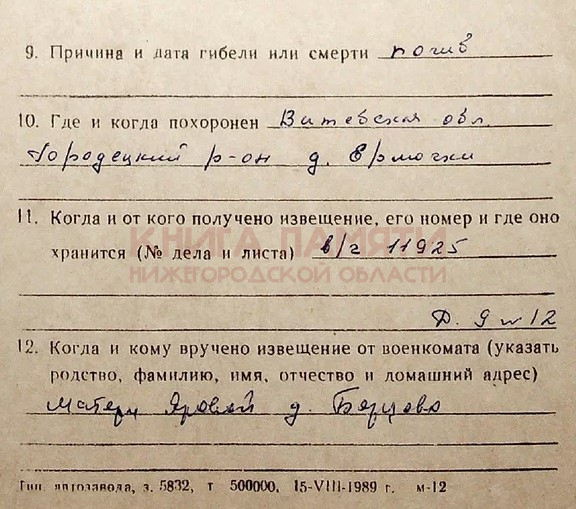 9. Причина и дата гибели или смерти погиб
10. Где и когда похоронен Витебская обл.
Городецкий р-он д. Ермачки
11. Когда и от кого получено извещение, его номер и где оно
хранится (№ дела и листа) в/ч 11925
КНИГА ПАМЯТИ
НИЖЕГОРОДСКОЙ ОБЛАСТИ
Д. 9 л 12
12. Когда и кому вручено извещение от военкомата (указать
родство, фамилию, имя, отчество и домашний адрес)
Матери Яровой д.
Тип. автозавода, з. 5832, т 500000, 15-VIII-1989 г. м-12